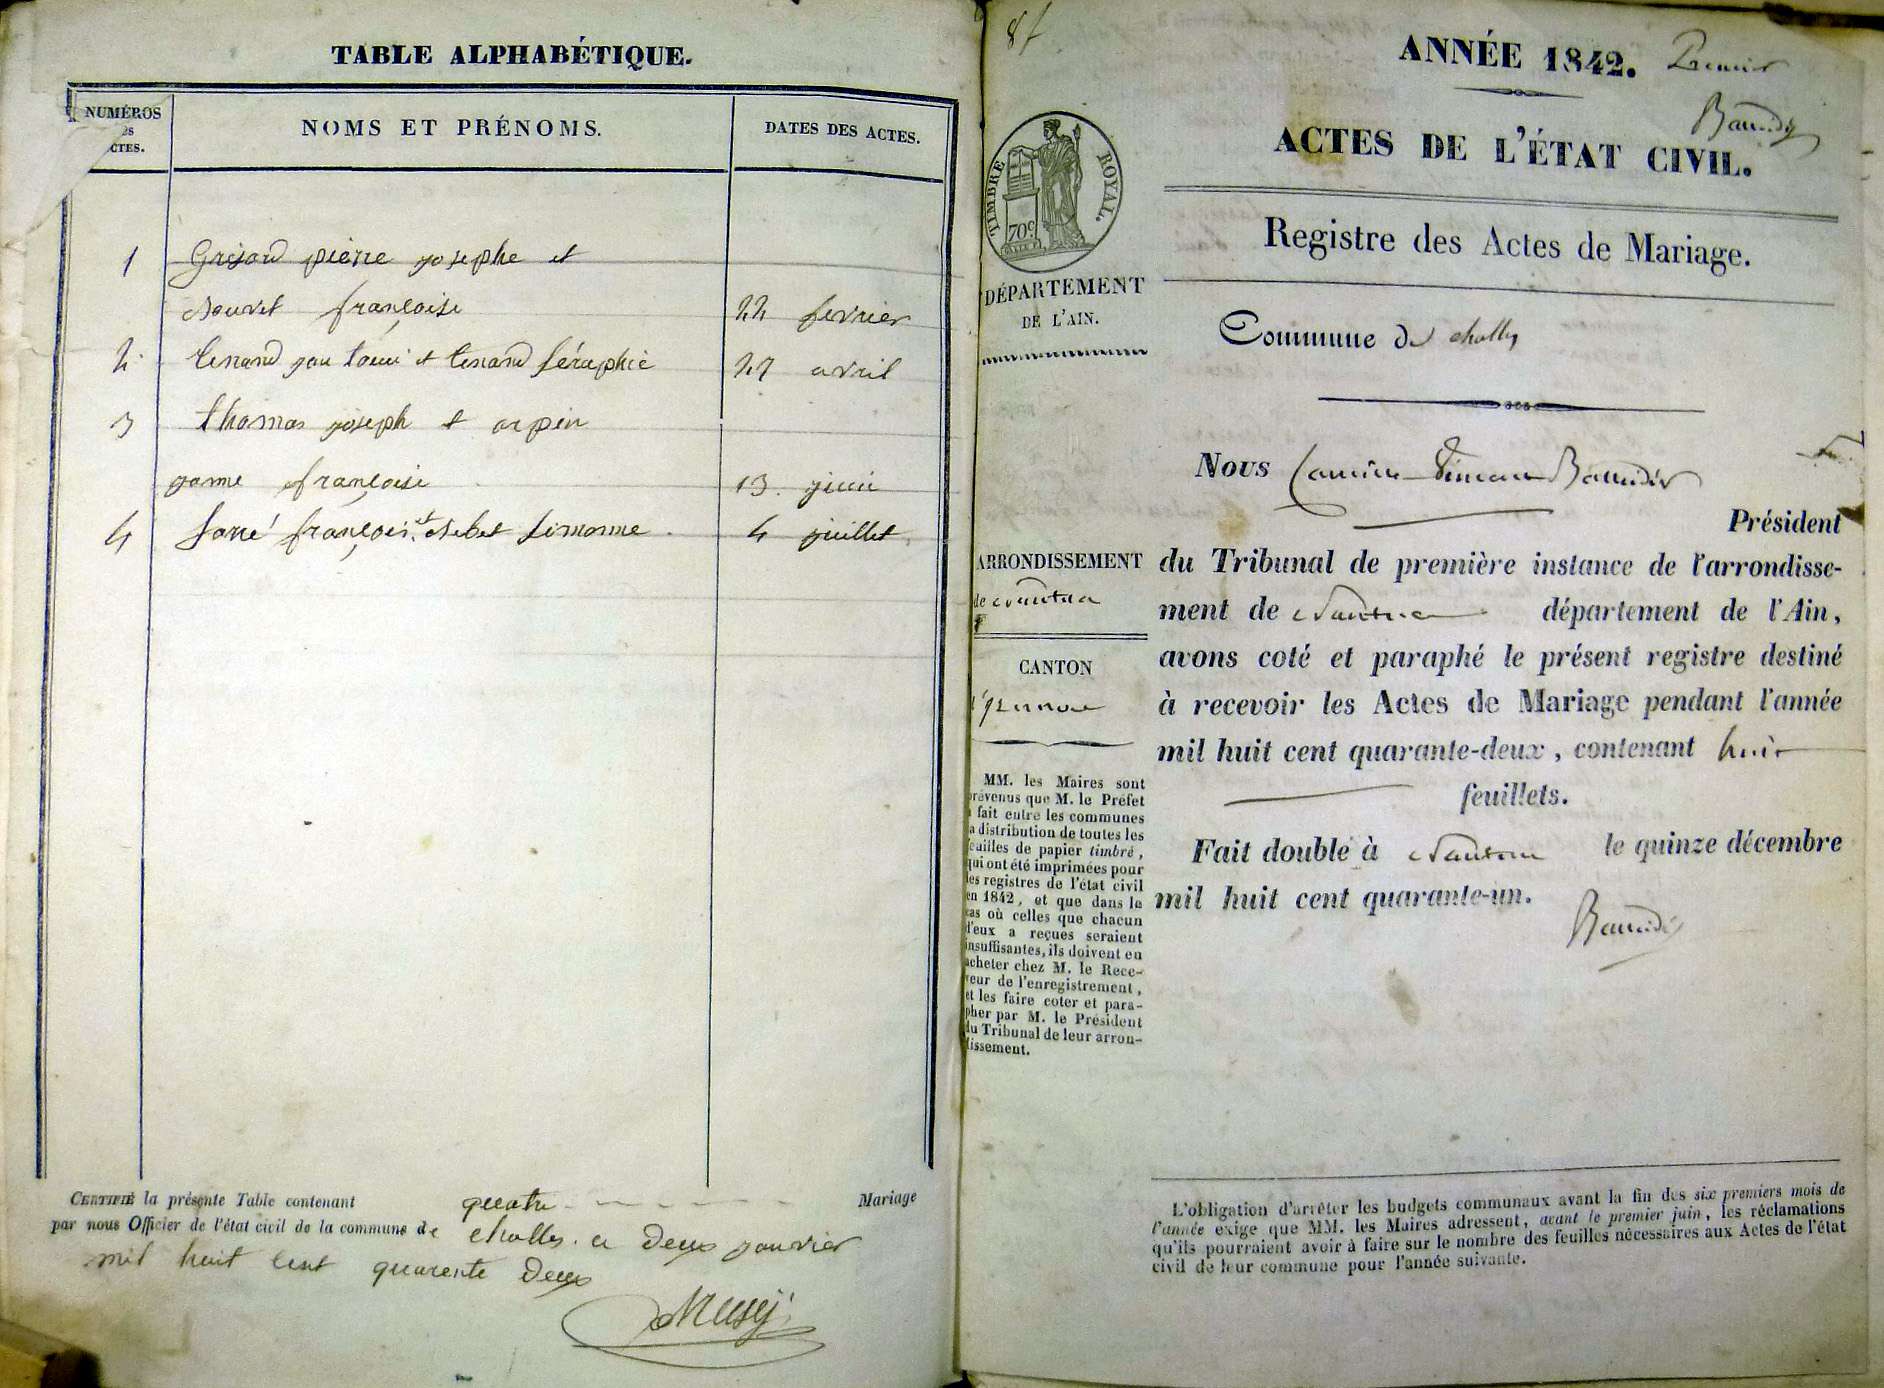 TABLE ALPHABÉTIQUE.
NUMÉROS
CTES.
NOMS ET PRÉNOMS.
DATES DES ACTES.
1 pierre josephe et
françoise 22 fevrier
2 et séraphie 27 avril
3 thomas joseph et arpin
françoise 13. juin
4 françois et simonne 4 juillet
CERTIFIÉ la présente Table contenant quatre Mariage
par nous Officier de l'état civil de la commune de challes. a deux janvier
mil huit cent quarente deux
ANNÉE 1842. Premier
ACTES DE L'ÉTAT CIVIL.
TIMBRE ROYAL.
70c
Registre des Actes de Mariage.
DÉPARTEMENT
DE L'AIN.
Commune de
Nous
Président
ARRONDISSEMENT
de Nantua
CANTON
MM. les Maires sont
prévenus que M. le Préfet
a fait entre les communes
la distribution de toutes les
feuilles de papier timbré,
qui ont été imprimées pour
les registres de l'état civil
en 1842, et que dans le
cas où celles que chacun
d'eux a reçues seraient
insuffisantes, ils doivent en
acheter chez M. le Rece-
veur de l'enregistrement,
et les faire coter et para-
pher par M. le Président
du Tribunal de leur arron-
dissement.
du Tribunal de première instance de l'arrondisse-
ment de Nantua département de l'Ain,
avons coté et paraphé le présent registre destiné
à recevoir les Actes de Mariage pendant l'année
mil huit cent quarante-deux, contenant huit
feuillets.
Fait double à Nantua le quinze décembre
mil huit cent quarante-un.
L'obligation d'arrêter les budgets communaux avant la fin des six premiers mois de
l'année exige que MM. les Maires adressent, avant le premier juin, les réclamations
qu'ils pourraient avoir à faire sur le nombre des feuilles nécessaires aux Actes de l'état
civil de leur commune pour l'année suivante.